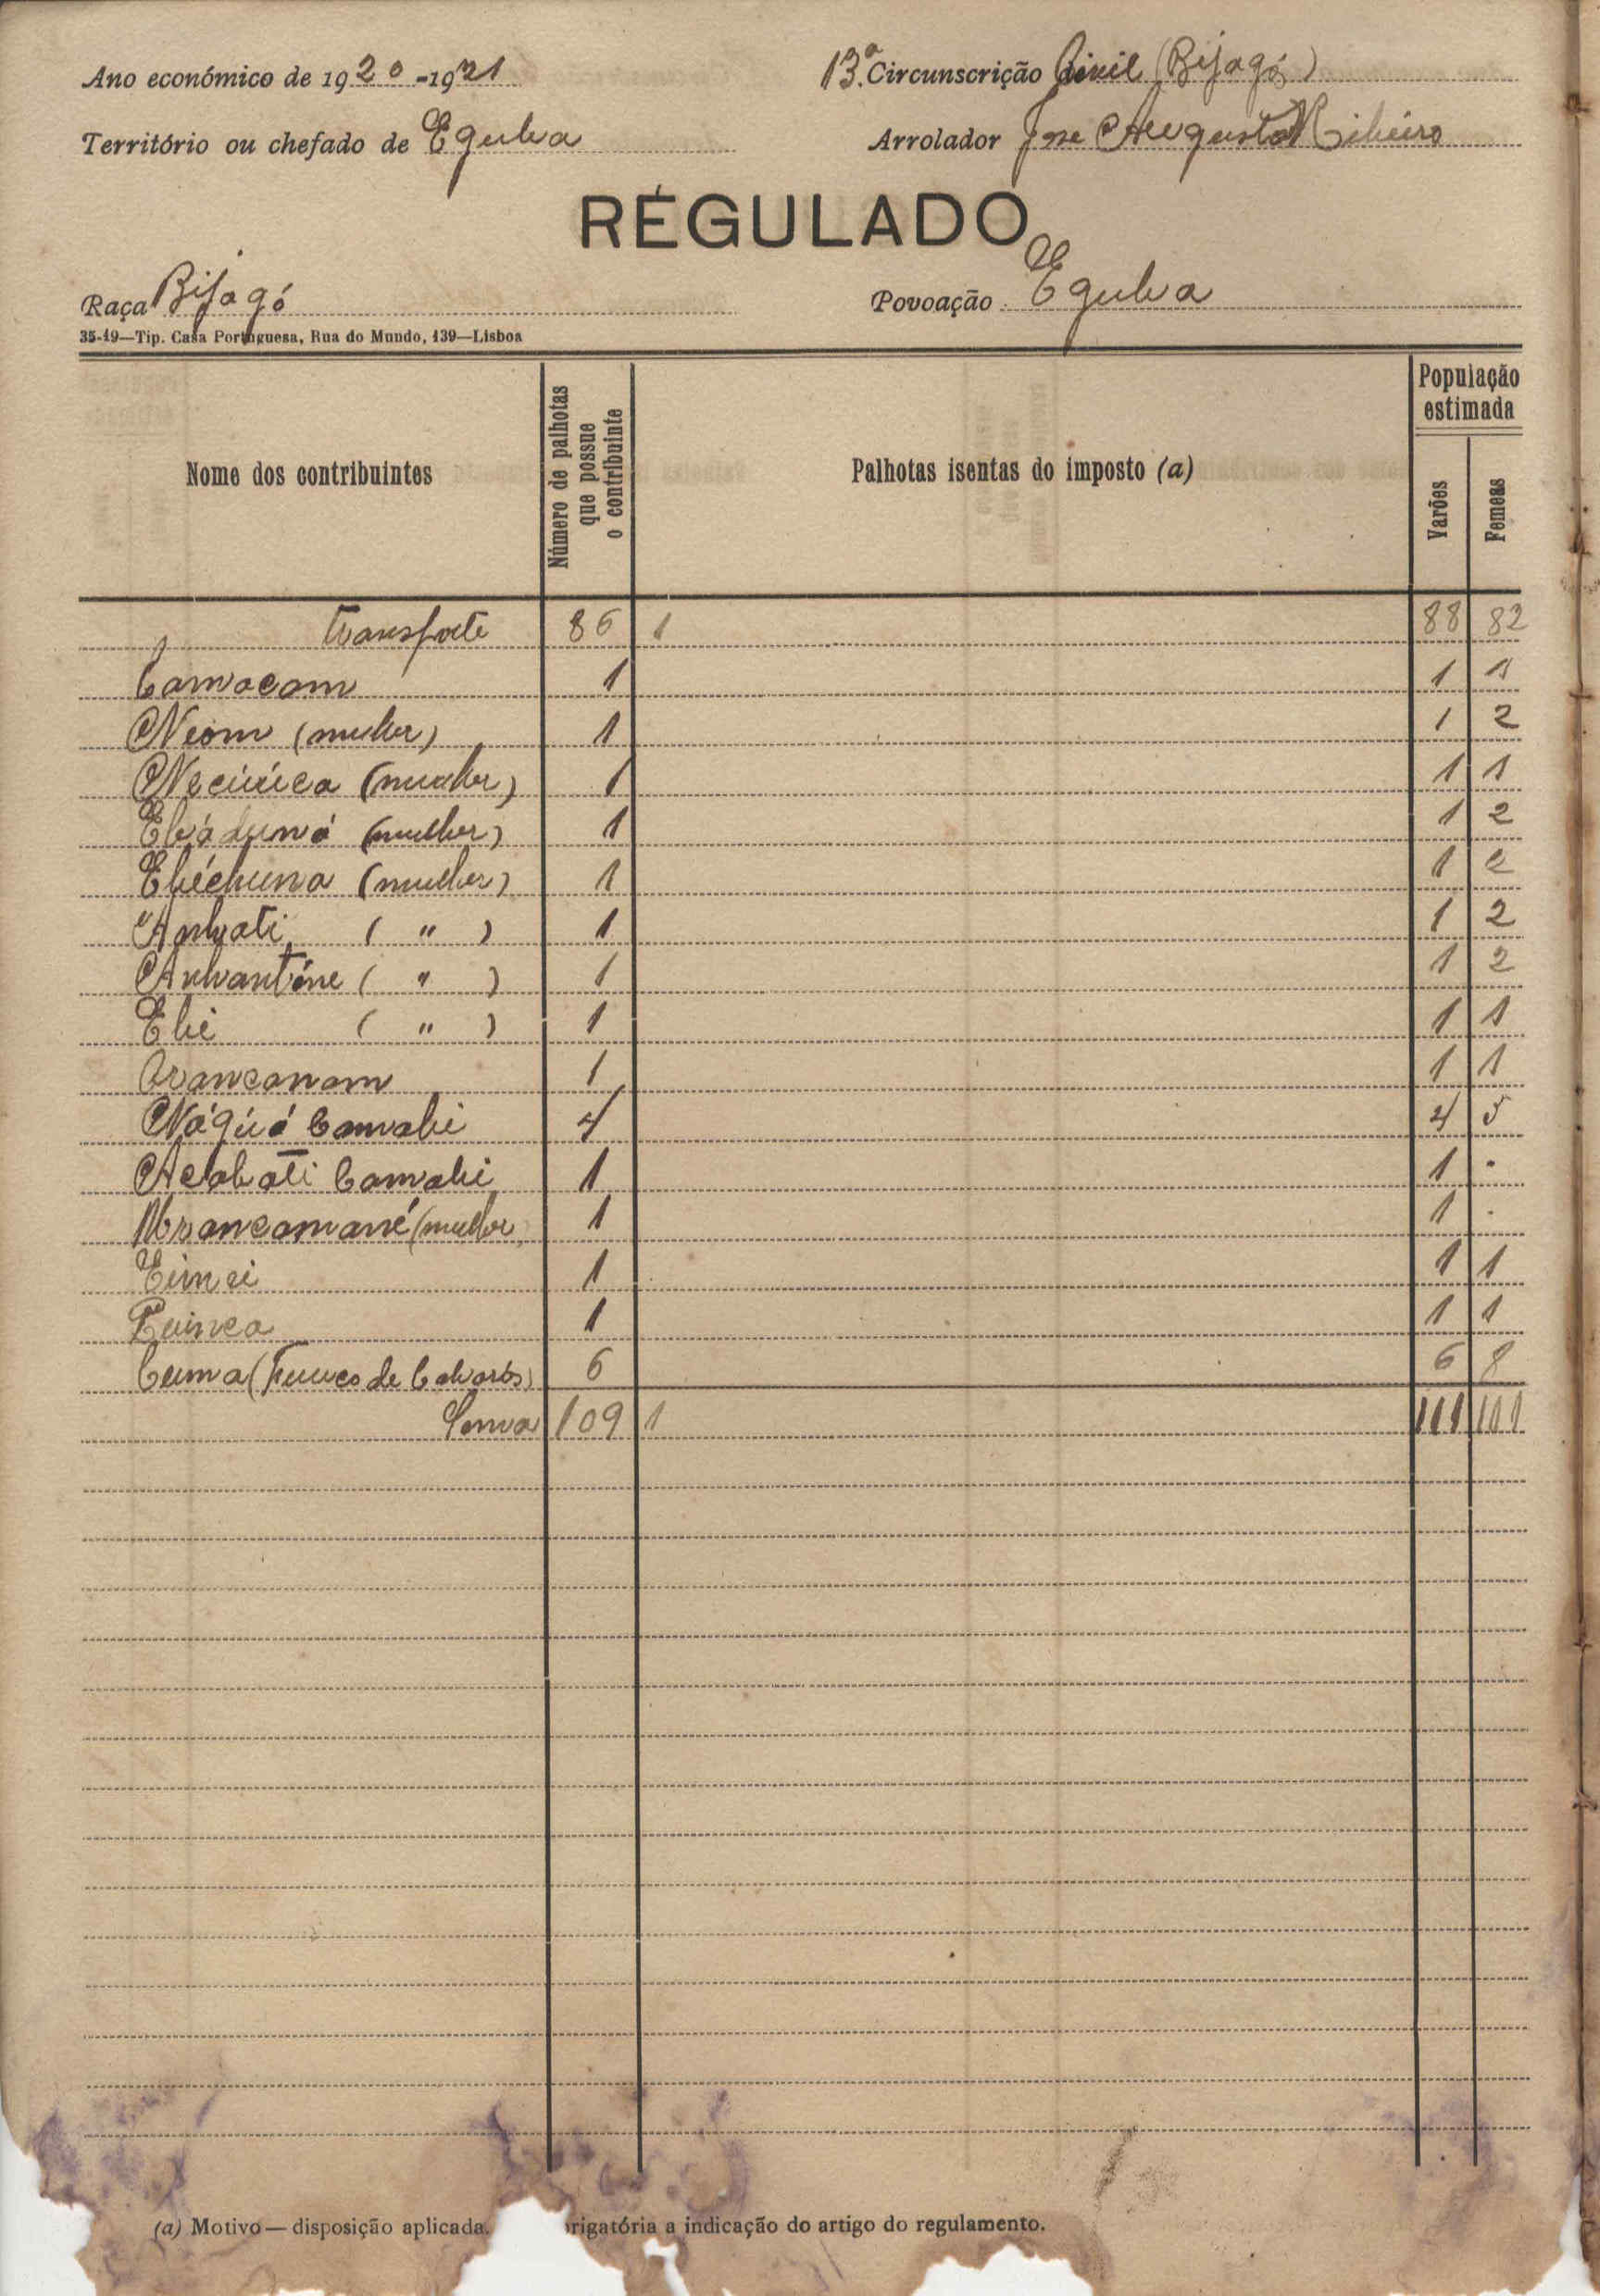 Ano económico de 1920-1921
13.ª Circunscrição Civil (Bijagós)
Território ou chefado de Eguba
Arrolador Jose Augusto Ribeiro
RÉGULADO
Raça Bijagó
Povoação Eguba
35-19—Tip. Casa Portuguesa, Rua do Mundo, 139—Lisboa
Nome dos contribuintes
Número de palhotas que possue o contribuinte
Palhotas isentas do imposto (a)
População estimada
Varões
Femeas
Transporte 86 1 88 82
Camacam 1 1 1
Neom (mulher) 1 1 2
(mulher) 1 1 1
(mulher) 1 1 2
(mulher) 1 1 2
( " ) 1 1 2
( " ) 1 1 2
Ebi ( " ) 1 1 1
1 1 1
Nóguó Camabi 4 4 5
Acabati Camabi 1 1 .
(mulher 1 1 .
1 1 1
1 1 1
6 6 8
Soma 109 1 111 111
(a) Motivo—disposição aplicada. rigatória a indicação do artigo do regulamento.